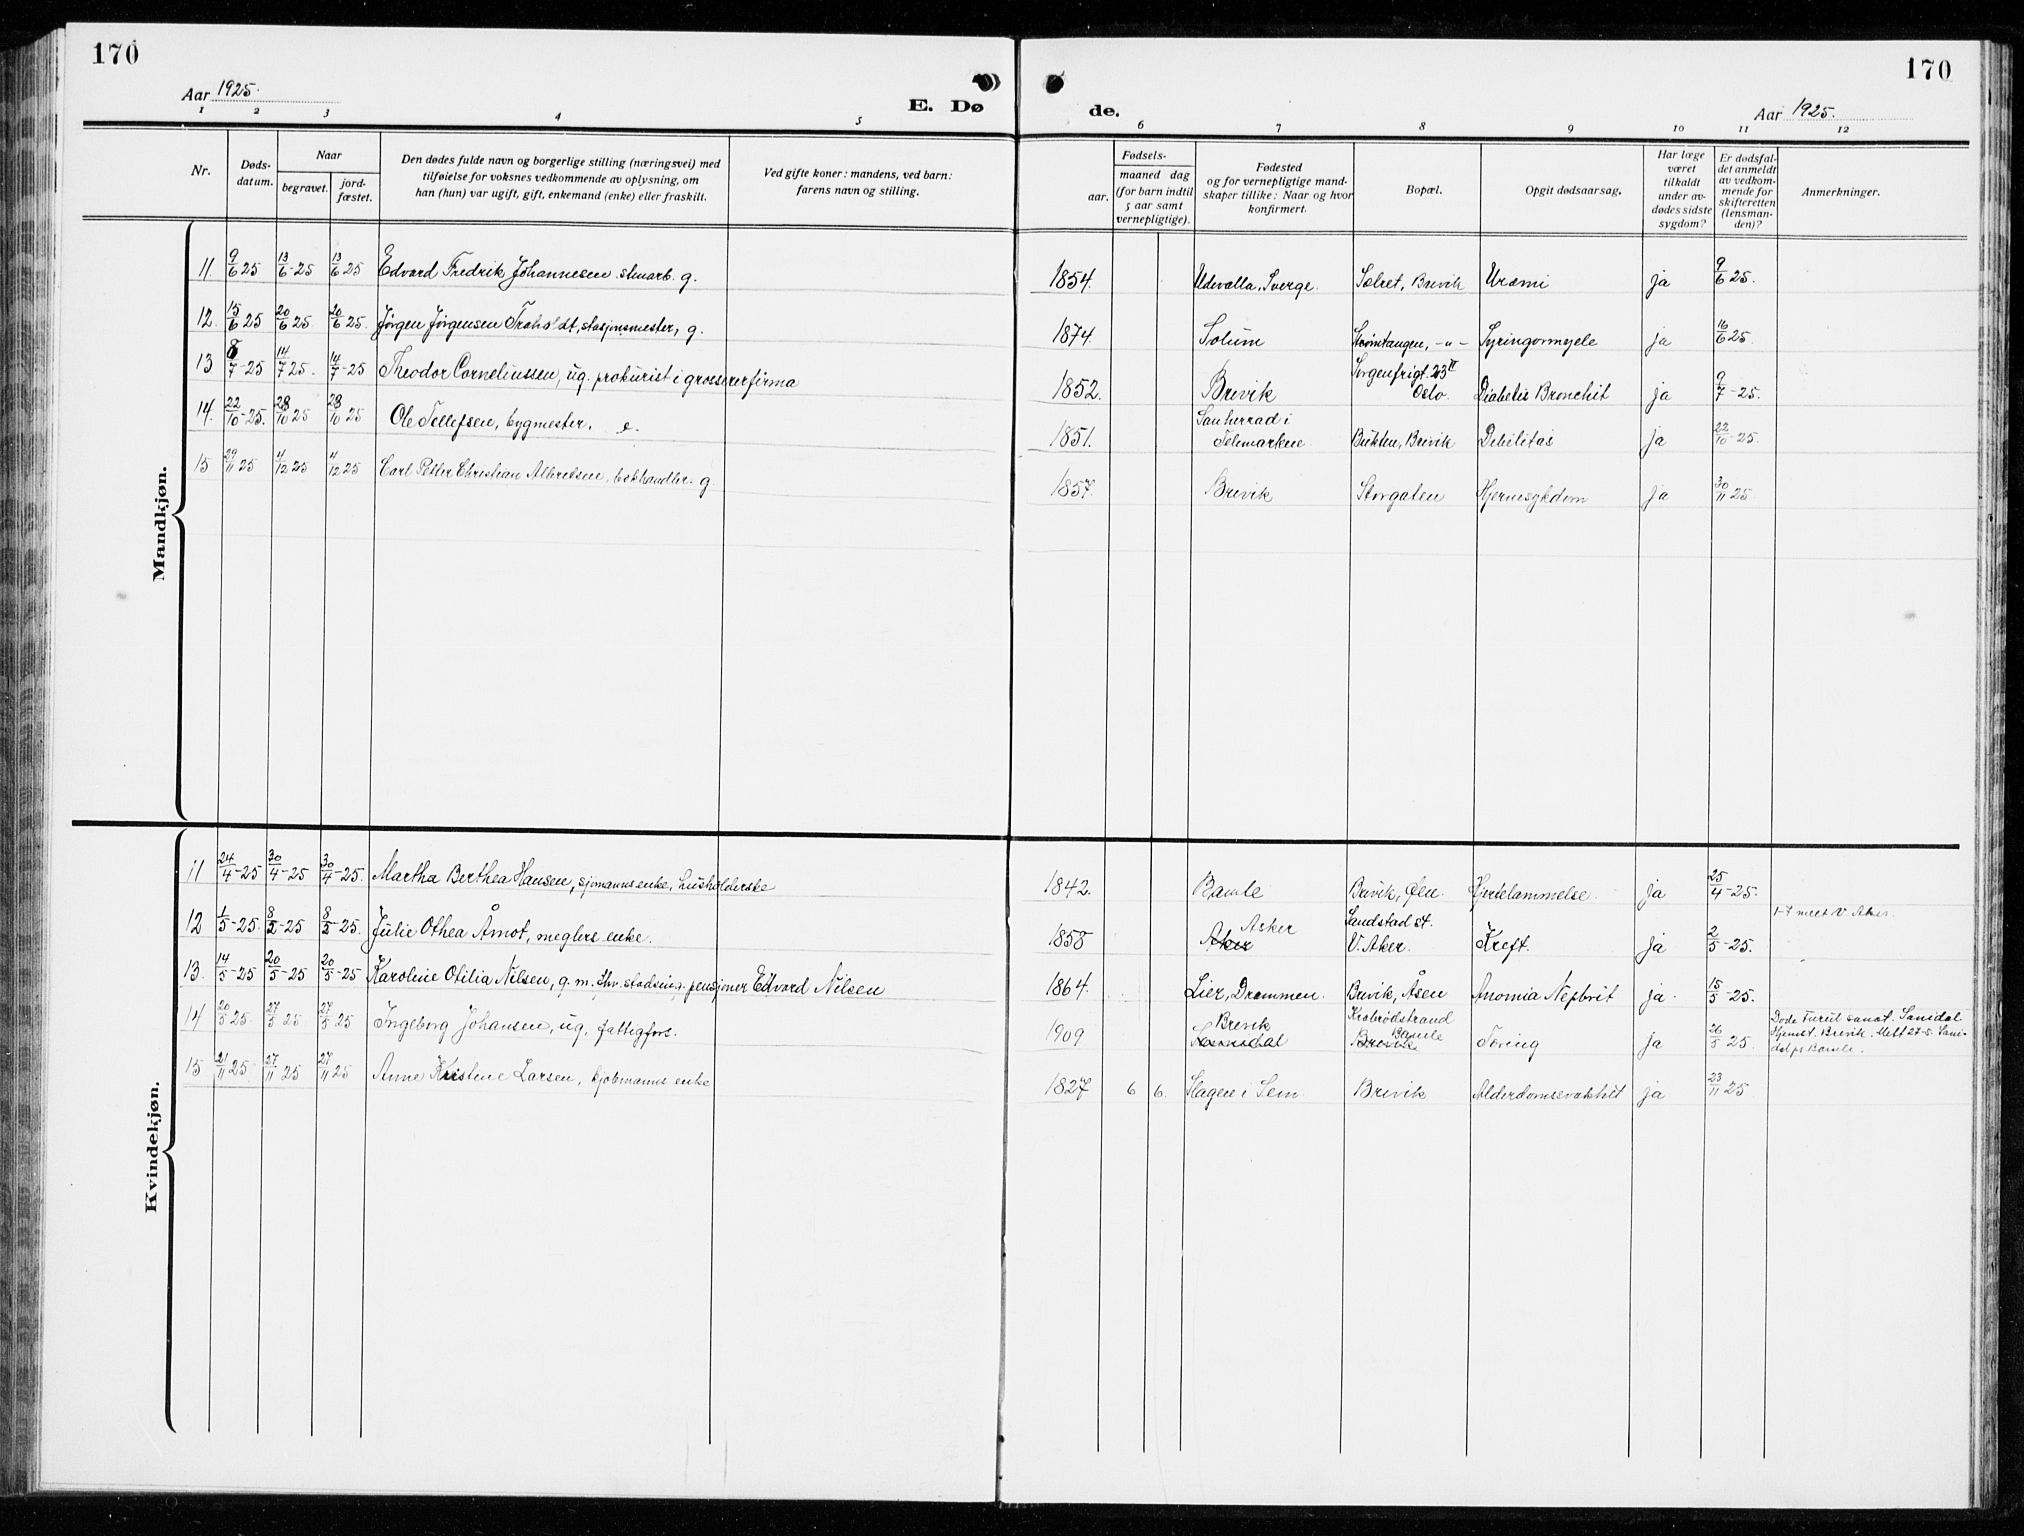 170
170
Aar 1925.
E. Dø
de.
Aar 1925.
1 2 3 4 5 6 7 8 9 10 11 12
Nr.
Døds-
datum.
Naar
begravet.
jord-
fæstet.
Den dødes fulde navn og borgerlige stilling (næringsvei) med
tilføielse for voksnes vedkommende av oplysning, om
han (hun) var ugift, gift, enkemand (enke) eller fraskilt.
Ved gifte koner: mandens, ved barn:
farens navn og stilling.
Fødsels-
aar.
maaned dag
(for barn indtil
5 aar samt
vernepligtige).
Fødested
og for vernepligtige mand-
skaper tillike: Naar og hvor
konfirmert.
Bopæl.
Opgit dødsaarsag.
Har læge
været
tilkaldt
under av-
dødes sidste
sygdom?
Er dødsfal-
det anmeldt
av vedkom-
mende for
skifteretten
(lensman-
den)?
Anmerkninger.
Mandkjøn.
11. 9/6 25 13/6-25 13/6 25 Edvard Fredrik Johannesen g. 1854. Udevalla, Sverge. Brevik Uræmi ja 9/6 25.
12. 15/6 25 20/6 25 20/6 25. Jørgen Jørgensen stasjonsmester, g. 1874. Solum -"- Syringomyele ja 16/6 25.
13 8/7-25 14/7 25. 14/7-25 Theodor Corneliussen, ug. prokurist i grossererfirma 1852. Brevik Sorgenfrigt. 23 II
Oslo. Diabetis Bronchit ja 9/7-25.
14. 22/10-25. 28/10 25 28/10 25 Ole Tellefsen, bygmester. e. 1851. Sauherrad i
Telemarken Bukten, Brevik Debilitas ja 22/10-25.
15 29/11 25 4/12 25 4/12 25 Carl Peter Christian Albretsen, bokhandler. g 1857. Brevik Storgaten Hjernesykdom ja 30/11 25.
Kvindekjøn.
11 24/4-25 30/4-25 30/4-25. Martha Berthea Hansen, sjømanns enke, husholderske 1842. Bamle Brevik, Øen Hjertelammelse. ja 25/4-25.
12 1/5-25. 8/5-25 8/5-25. Julie Othea Åmot, meglers enke. 1858 Asker
Aker Sandstad st.
V. Aker. Kreft. ja 2/5-25. 1-7 meet V. Aker.
13. 14/5-25 20/5-25 20/5-25 Karoline Otilia Nilsen, g. m. pensjoner Edvard Nilsen 1864. Lier, Drammen. Brevik, Åsen Anomia Nefbrit ja. 15/5-25.
14 20/5 25. 27/5 25 27/5 25 Ingeborg Johansen, ug. fattigfors. 1909 Brevik Krabrødstrand
Bamle
Brevik Tæring ja 26/5 25. Døde Furul sanat. Sanidal
Hjemst. Brevik. Mett 27-5 Sani-
dal pr Bamle.
15 21/11 25. 27/11 25 27/11 25 Anne Kristene Larsen, kjøbmanns enke 1827 6 6. Slagen i Sem. Brevik Alderdomsvakhet ja 23/11 25